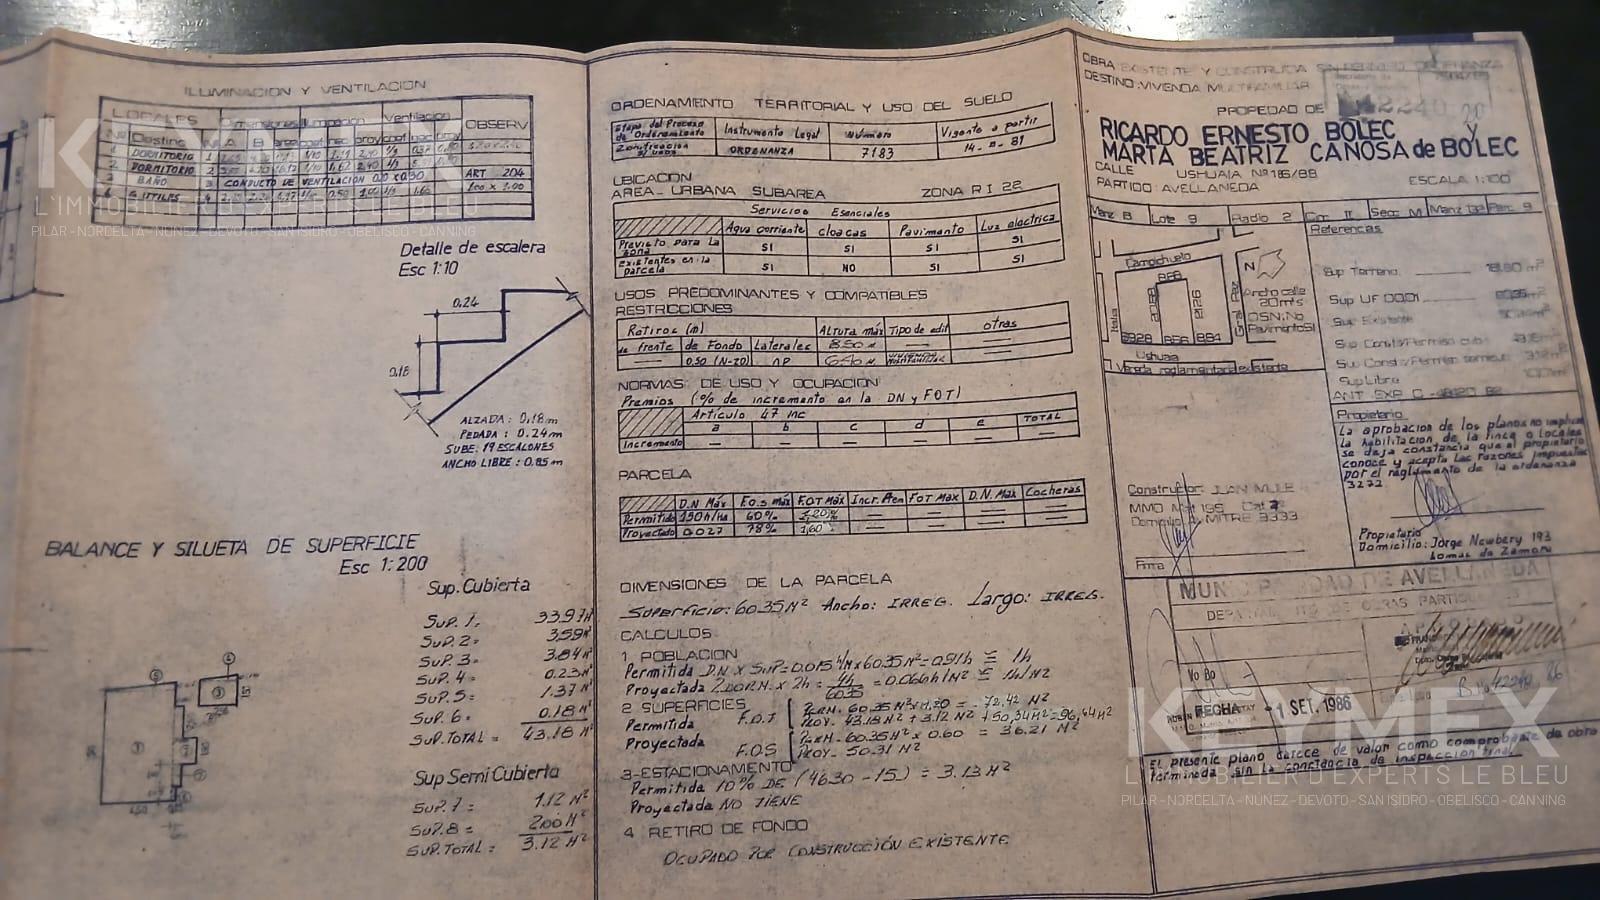 ILUMINACION Y VENTILACION
LOCALES Dimensiones Iluminación Ventilación OBSERV
Nº Destino Nº A B area
1 DORMITORIO 1
2 DORMITORIO 2
3 BAÑO 3 CONDUCTO DE VENTILACION 0.20 x 0.30 ART 204
4
Detalle de escalera
Esc 1:10
0.24
0.18
ALZADA: 0.18m
PEDADA: 0.24m
SUBE: 19 ESCALONES
ANCHO LIBRE: 0.85m
BALANCE Y SILUETA DE SUPERFICIE
Esc 1:200
Sup. Cubierta
SUP. 1= 33.97 M²
SUP. 2= 3.59 M²
SUP. 3= 3.84 M²
SUP. 4= 0.23 M²
SUP. 5= 1.37 M²
SUP. 6= 0.18 M²
SUP. TOTAL = 43.18 M²
Sup Semi Cubierta
SUP. 7= 1.12 M²
SUP. 8= 2.00 M²
SUP. TOTAL = 3.12 M²
ORDENAMIENTO TERRITORIAL Y USO DEL SUELO
Etapa del Proceso de Ordenamiento Instrumento Legal Número Vigente a partir
Zonificación s/ usos ORDENANZA 7183
UBICACION
AREA - URBANA SUBAREA ZONA R I 22
Servicios Esenciales
Agua corriente cloacas Pavimento Luz electrica
Previsto para la zona SI SI SI SI
Existentes en la parcela SI NO SI SI
USOS PREDOMINANTES Y COMPATIBLES
RESTRICCIONES
Retiros (m) Altura máx Tipo de edif otras
de frente de Fondo Laterales 8.50 M — —
— 0,50 (N-20) NP —
NORMAS DE USO Y OCUPACION
Premios (% de incremento en la DN y FOT)
Artículo 47 inc TOTAL
a b c d e
Incremento — — — — — —
PARCELA
D.N Máx F.O.S máx F.O.T Máx Incr. Pten FOT Máx D.N. Máx Cocheras
Permitido 150h/Ha 60% — — — —
Proyectado 0.027 78% 1,60 — — — —
DIMENSIONES DE LA PARCELA
SUPERFICIO: 60.35 M² Ancho: IRREG. Largo: IRREG.
CALCULOS
1 POBLACION
Permitida D.N x SUP = 0.015 h/M² x 60.35 M² = 0.91h ≅ 1h
Proyectada 2 DORM. x 2h = 4h/60.35 = 0.066h/M² ≅ 1h/M²
2 SUPERFICIES
Permitida F.O.T PERM. 60.35 M² x 1.20 = 72.42 M²
PROY. 43.18 M² + 3.12 M² + 50,34 M² = 96,64 M²
Proyectada F.O.S PERM. 60.35 M² x 0.60 = 36.21 M²
PROY. 50.31 M²
3-ESTACIONAMIENTO
Permitida 10% DE (4630 - 15) = 3.13 M²
Proyectada NO TIENE
4 RETIRO DE FONDO
OCUPADO POR CONSTRUCCIÓN EXISTENTE
OBRA EXISTENTE Y CONSTRUIDA SIN PERMISO ORDENANZA
DESTINO: VIVIENDA MULTIFAMILIAR
PROPIEDAD DE
RICARDO ERNESTO BOLEC Y
MARTA BEATRIZ CANOSA de BOLEC
CALLE USHUAIA Nº 186/88
PARTIDO: AVELLANEDA ESCALA 1:100
Manz B Lote 9 Radio 2 Circ II Secc M Parc 9
Referencias
Campichuelo
N
Ancho calle
20mts
OSN: No
Pavimento SI
Italia
Ushuaia
Vereda reglamentaria existente
Sup Terreno
Sup UF 00,01
Sup Existente
Sup Libre
Propietario
La aprobacion de los planos no implica
la habilitacion de la finca o locales
se deja constancia que el propietario
conoce y acepta las razones impuestas
por el reglamento de la ordenanza
3272
Constructor: JUAN MULE
MMO Mat 195
Domicilio MITRE 3333
Firma
Propietario
Domicilio: Jorge Newbery 193
Lomas de Zamora
MUNICIPALIDAD DE AVELLANEDA
DEPARTAMENTO DE OBRAS PARTICULARES
Vo Bo
FECHA -1 SET. 1986
El presente plano carece de valor como comprobante de obra
terminada sin la constancia de inspeccion final
KEYMEX
L'IMMOBILIER D'EXPERTS LE BLEU
PILAR - NORDELTA - NUÑEZ - DEVOTO - SAN ISIDRO - OBELISCO - CANNING
KEYMEX
L'IMMOBILIER D'EXPERTS LE BLEU
PILAR - NORDELTA - NUÑEZ - DEVOTO - SAN ISIDRO - OBELISCO - CANNING